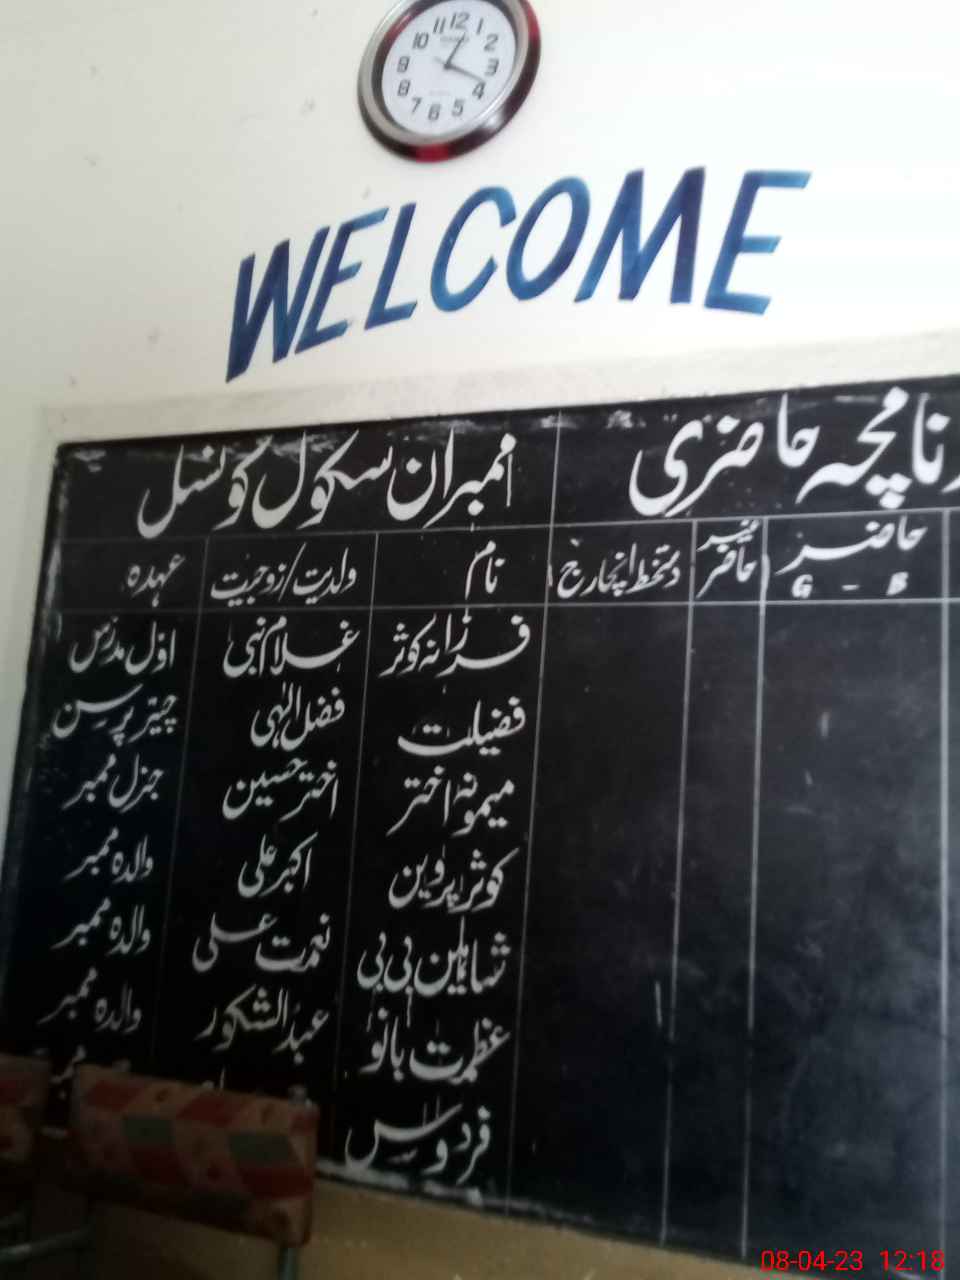 12 1 2 3 4 5 6 7 8 9 10 11
WELCOME
نامچہ حاضری
ممبران سکول کونسل
حاضر غیر حاضر دستخط انچارج نام ولدیت/زوجیت عہدہ
G - B
فرزانہ کوثر غلام نبی اوّل مدرس
فضیلت فضل الٰہی چیئر پرسن
میمونہ اختر اختر حسین جنرل ممبر
کوثر پروین اکبر علی والدہ ممبر
شاہین بی بی نعمت علی والدہ ممبر
عظمت بانو عبدالشکور والدہ ممبر
فردوس
08-04-23 12:18